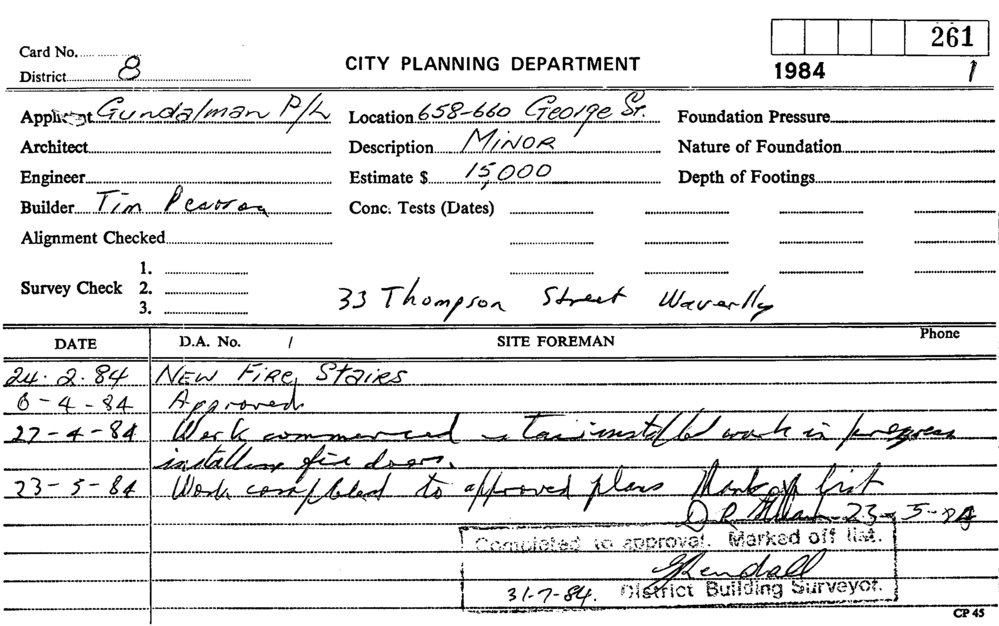 261
Card No.
District 8
CITY PLANNING DEPARTMENT
1984 1
Applicant Gundalman P/L Location 658-660 George St. Foundation Pressure
Architect Description MINOR Nature of Foundation
Engineer Estimate $ 15,000 Depth of Footings
Builder Tim Conc. Tests (Dates)
Alignment Checked
1.
Survey Check 2.
3.
33 Thompson Street Waverlly
DATE D.A. No. / SITE FOREMAN Phone
24.2.84 NEW FIRE STAIRS
6-4-84 Approved.
27-4-84 Work commenced installed work in progress
installing fire doors.
23-5-84 Work completed to approved plans Mark off list
23-5-84
Completed to approval. Marked off list.
31-7-84. District Building Surveyor.
CP 45